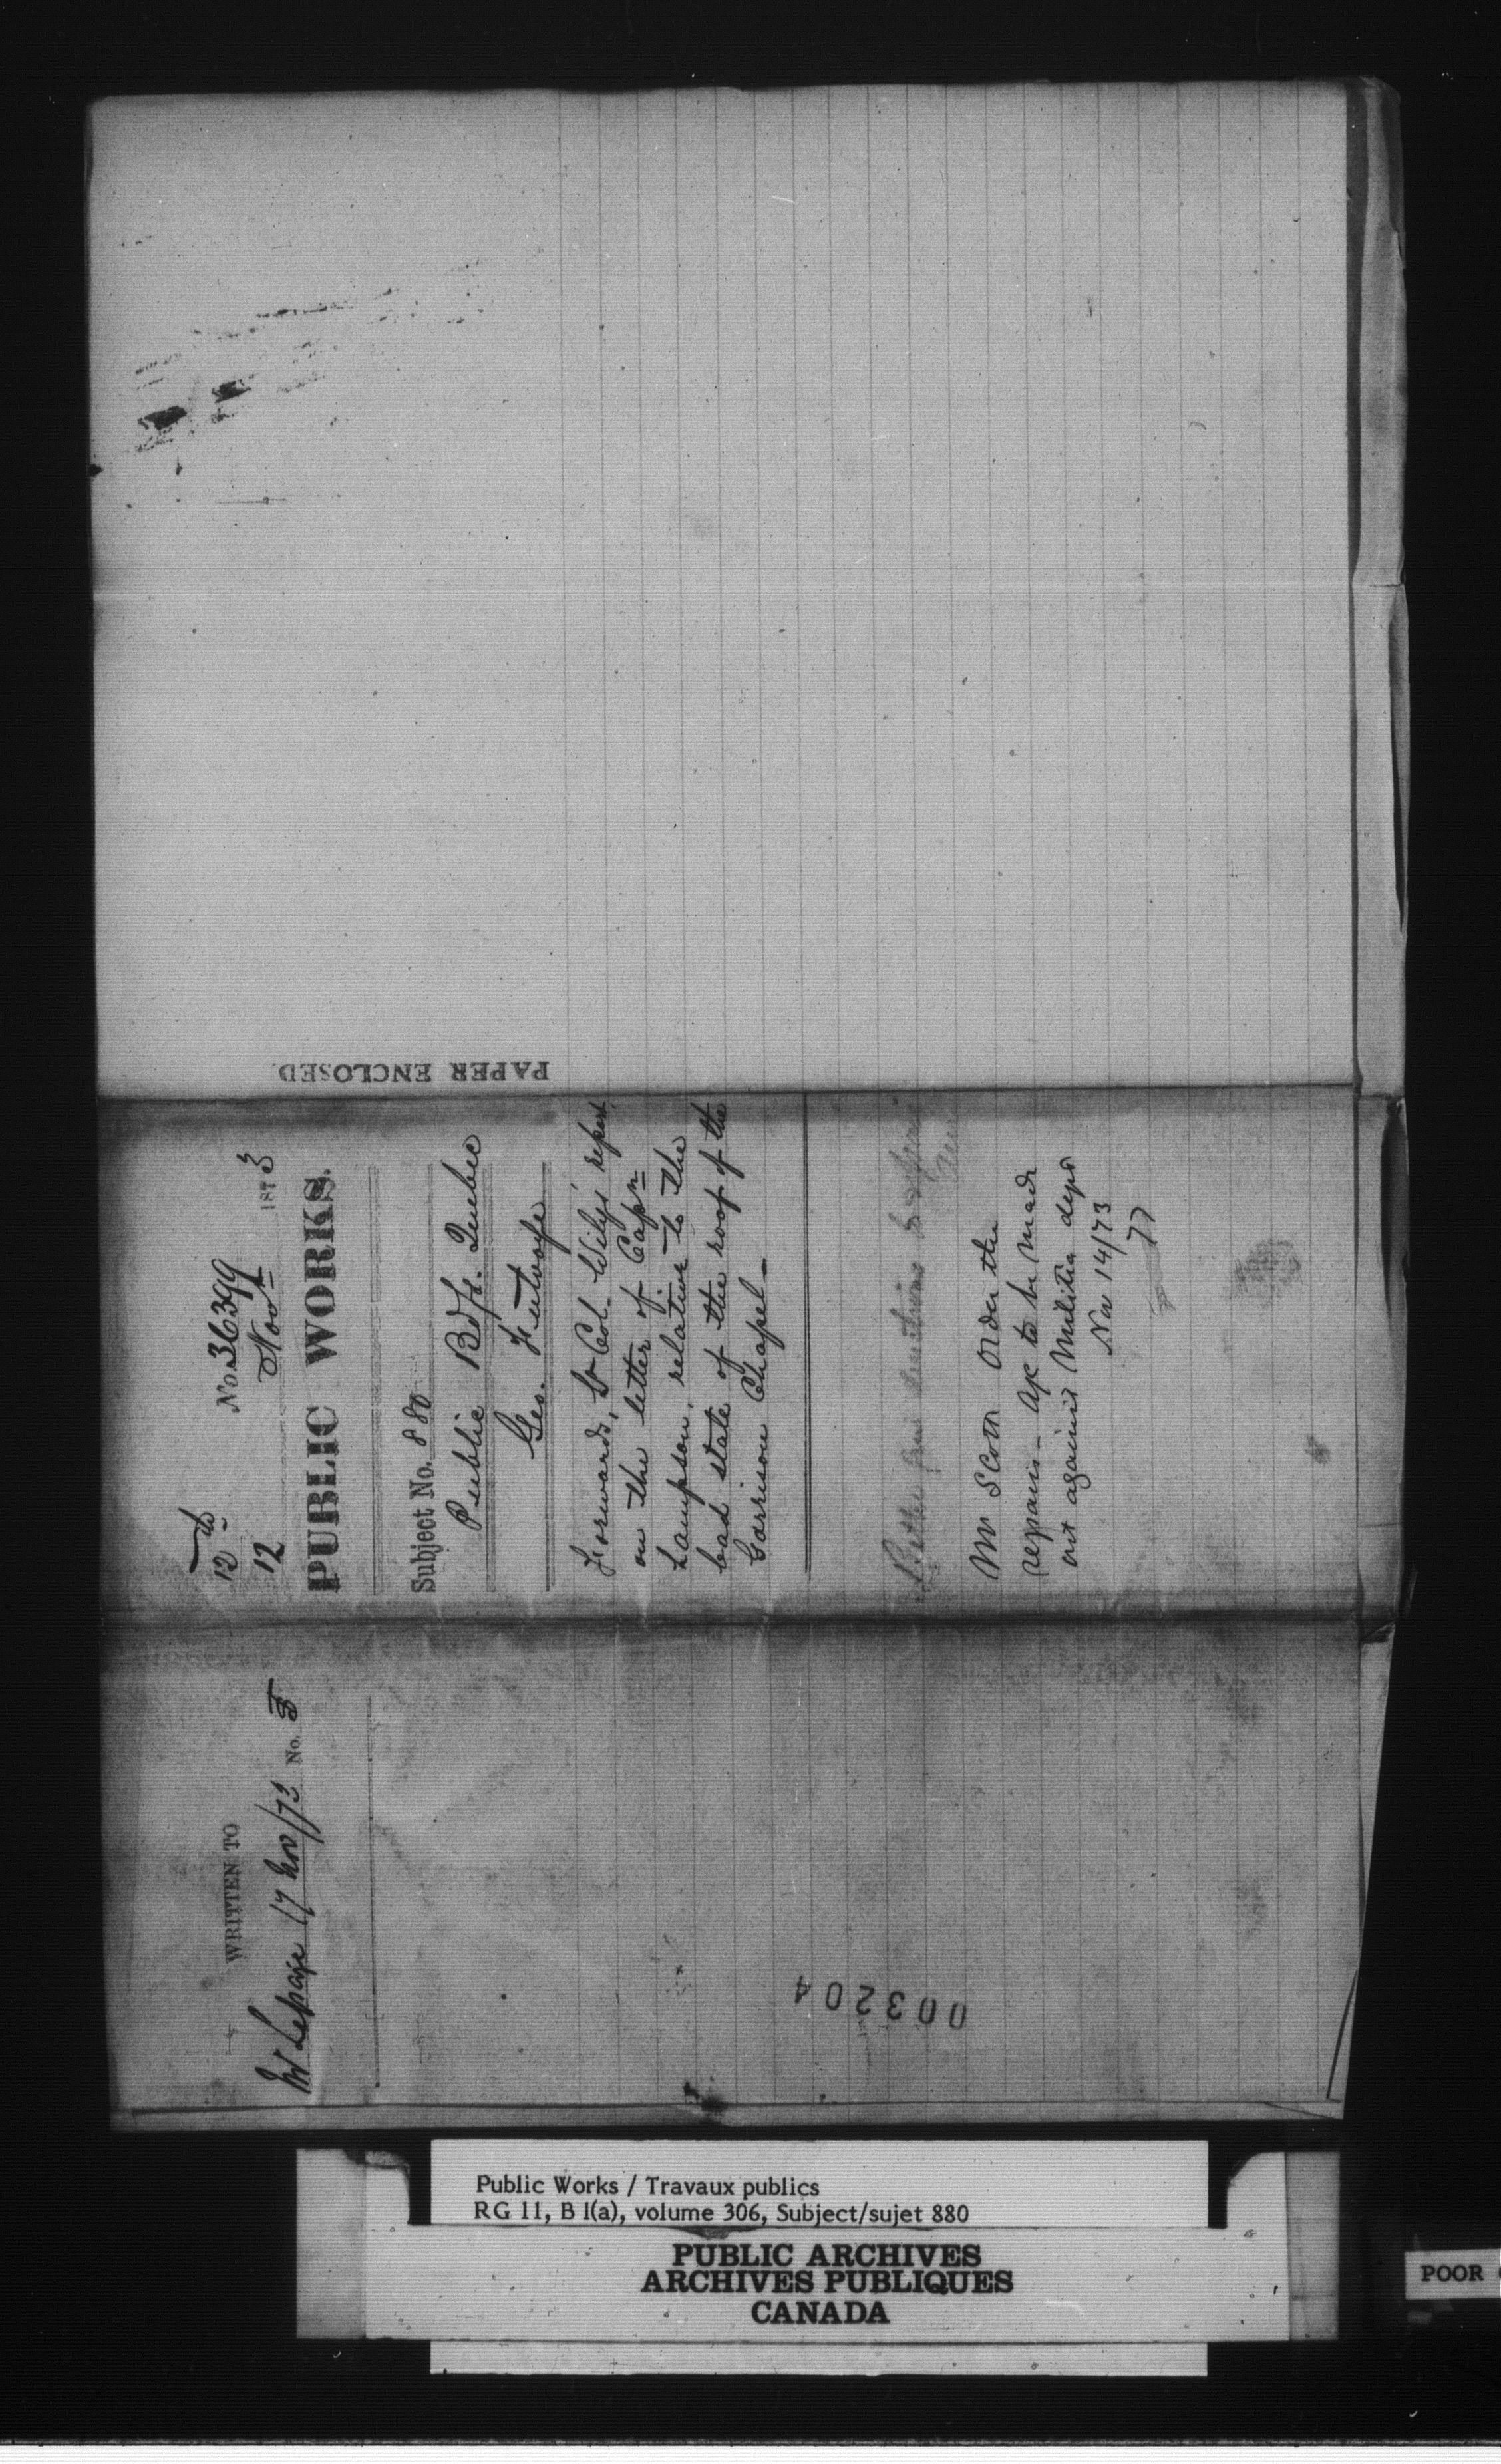 12th No. 36399
12 Novr 1873
PUBLIC WORKS.
Subject No. 880
Public Bdgs. Quebec
Geo. Futvoye
Forwards, Lt Col. Wily's report
on the letter of Capn
Lampson, relative to the
bad state of the roof of the
Garrison Chapel_
Mr Scott Order the
repairs_ a/c to be made
out against Militia dept
Nov 14/73
PAPER ENCLOSED
WRITTEN TO
Mr Lepage 17 Nov/73 No. 5
003204
Public Works / Travaux publics
RG 11, B 1(a), volume 306, Subject/sujet 880
PUBLIC ARCHIVES
ARCHIVES PUBLIQUES
CANADA
POOR